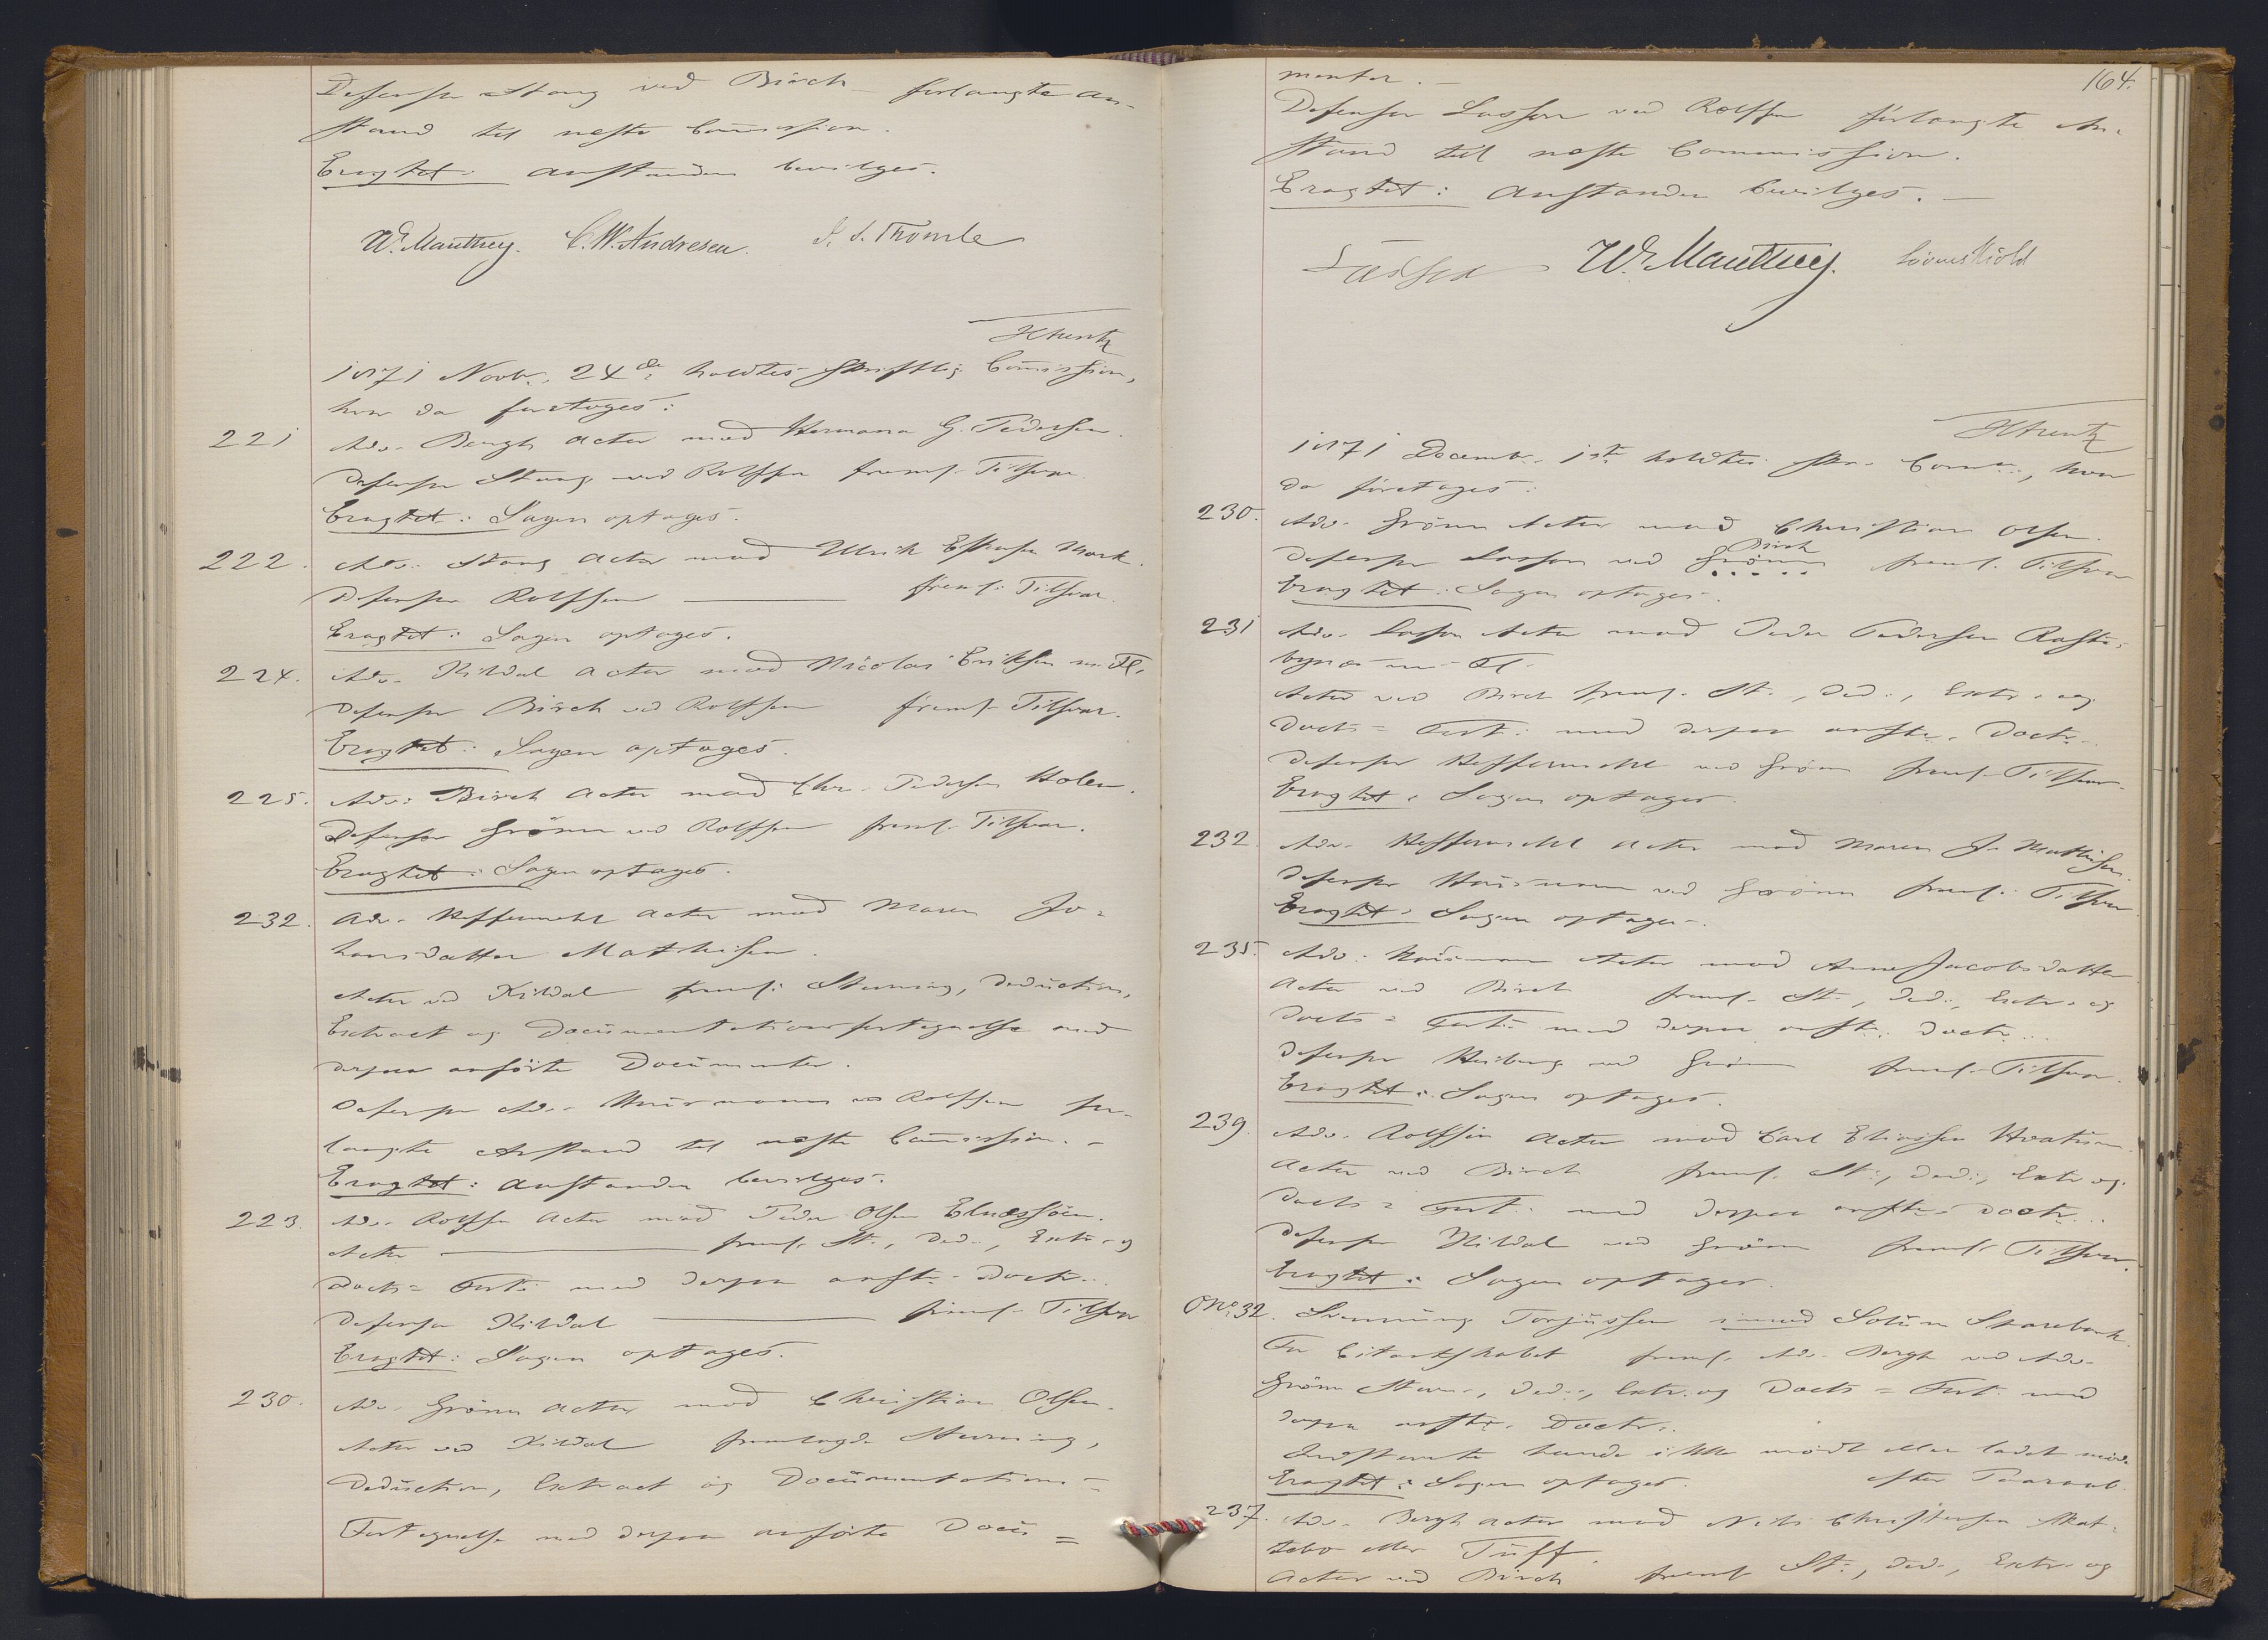 Defensor Stang ved Birch forlangte An-
stand til næste Commission.
Eragtet: Anstanden bevilges.
W. Manthey. C. W. Andresen. I. S. Thomle
1871 Novbr. 24de holdtes skriftlig Commission,
hvor da foretoges:
221 Adv. Bergh Actor mod Hermana G. Pedersen.
Defensor Stang ved Rolffsen freml. Tilsvar.
Eragtet: Sagen optages.
222. Adv. Stang Actor mod Ulrik Mork.
Defensor Rolffsen freml. Tilsvar.
Eragtet: Sagen optages.
224. Adv. Kildal Actor mod Nicolai Eriksen m. Fl.
Defensor Birch ved Rolffsen freml. Tilsvar.
Eragtet: Sagen optages.
225. Adv. Birch Actor mod Chr. Pedersen Holen.
Defensor Grönn ved Rolffsen freml. Tilsvar.
Eragtet: Sagen optages.
232. Adv. Heffermehl Actor mod Maren Jo-
hansdatter Mathisen.
Actor ved Kildal freml. Stævning, Deduction,
Extract og Documentationsfortegnelse med
derpaa anförte Documenter.
Defensor Adv. Husmann ved Rolffsen for-
langte Anstand til næste Commission. -
Eragtet: Anstanden bevilges.
223. Adv. Rolffsen Actor mod Peder Olsen
Actor freml. St., Ded., Extr. og
Docts = Fort. med derpaa anfte. Docts.
Defensor Kildal freml. Tilsvar
Eragtet: Sagen optages.
230. Adv. Grönn Actor mod Christian Olsen.
Actor ved Kildal fremlagde Stævning,
Deduction, Extract og Documentations =
Fortegnelse med derpaa anförte Docu =
164.
menter. -
Defensor Lasson ved Rolffsen forlangte An-
stand til næste Commission.
Eragtet: Anstanden bevilges. -
Lasson W. Manthey. Lövenskiold
1871 Decemb. 1ste holdtes skr. Comm., hvor
da foretoges:
230. Adv. Grönn Actor mod Christian Olsen.
Birch
Defensor Lasson ved Grönn freml. Tilsvar
Eragtet: Sagen optages.
231 Adv. Lasson Actor mod Peder Pedersen Raste-
byna m. Fl.
Actor ved Birch freml. St., Ded., Extr. og
Docts = Fort. med derpaa anfte. Docts.
Defensor Heffermehl ved Grönn freml. Tilsvar.
Eragtet: Sagen optages.
232 Adv. Heffermehl Actor mod Maren J. Mathisen.
Defensor Husmann ved Grönn freml. Tilsvar
Eragtet: Sagen optages.
235. Adv. Husmann Actor mod Anne Jacobsdatter
Actor ved Birch freml. St., Ded., Extr. og
Docts = Fort. med derpaa anfte. Docts.
Defensor Heiberg ved Grönn freml. Tilsvar.
Eragtet: Sagen optages.
239. Adv. Rolffsen Actor mod Carl Eliassen Hvatum
Actor ved Birch freml. St., Ded., Extr. og
Docts = Fort. med derpaa anfte. Docts.
Defensor Kildal ved Grönn freml. Tilsvar.
Eragtet: Sagen optages.
O No. 32. Svenning Torjussen imod Solum Sparebank.
For Citantskabet freml. Adv. Bergh ved Adv.
Grönn Stævn., Ded., Extr. og Docts = Fort. med
derpaa anfte. Docts.
Indstevnte havde ikke mödt eller ladet möde
Eragtet: Sagen optages. efter Paaraab.
237. Adv. Bergh Actor mod Niels Christensen Skat-
tebo eller Tuff.
Actor ved Birch freml. St., Ded., Extr. og